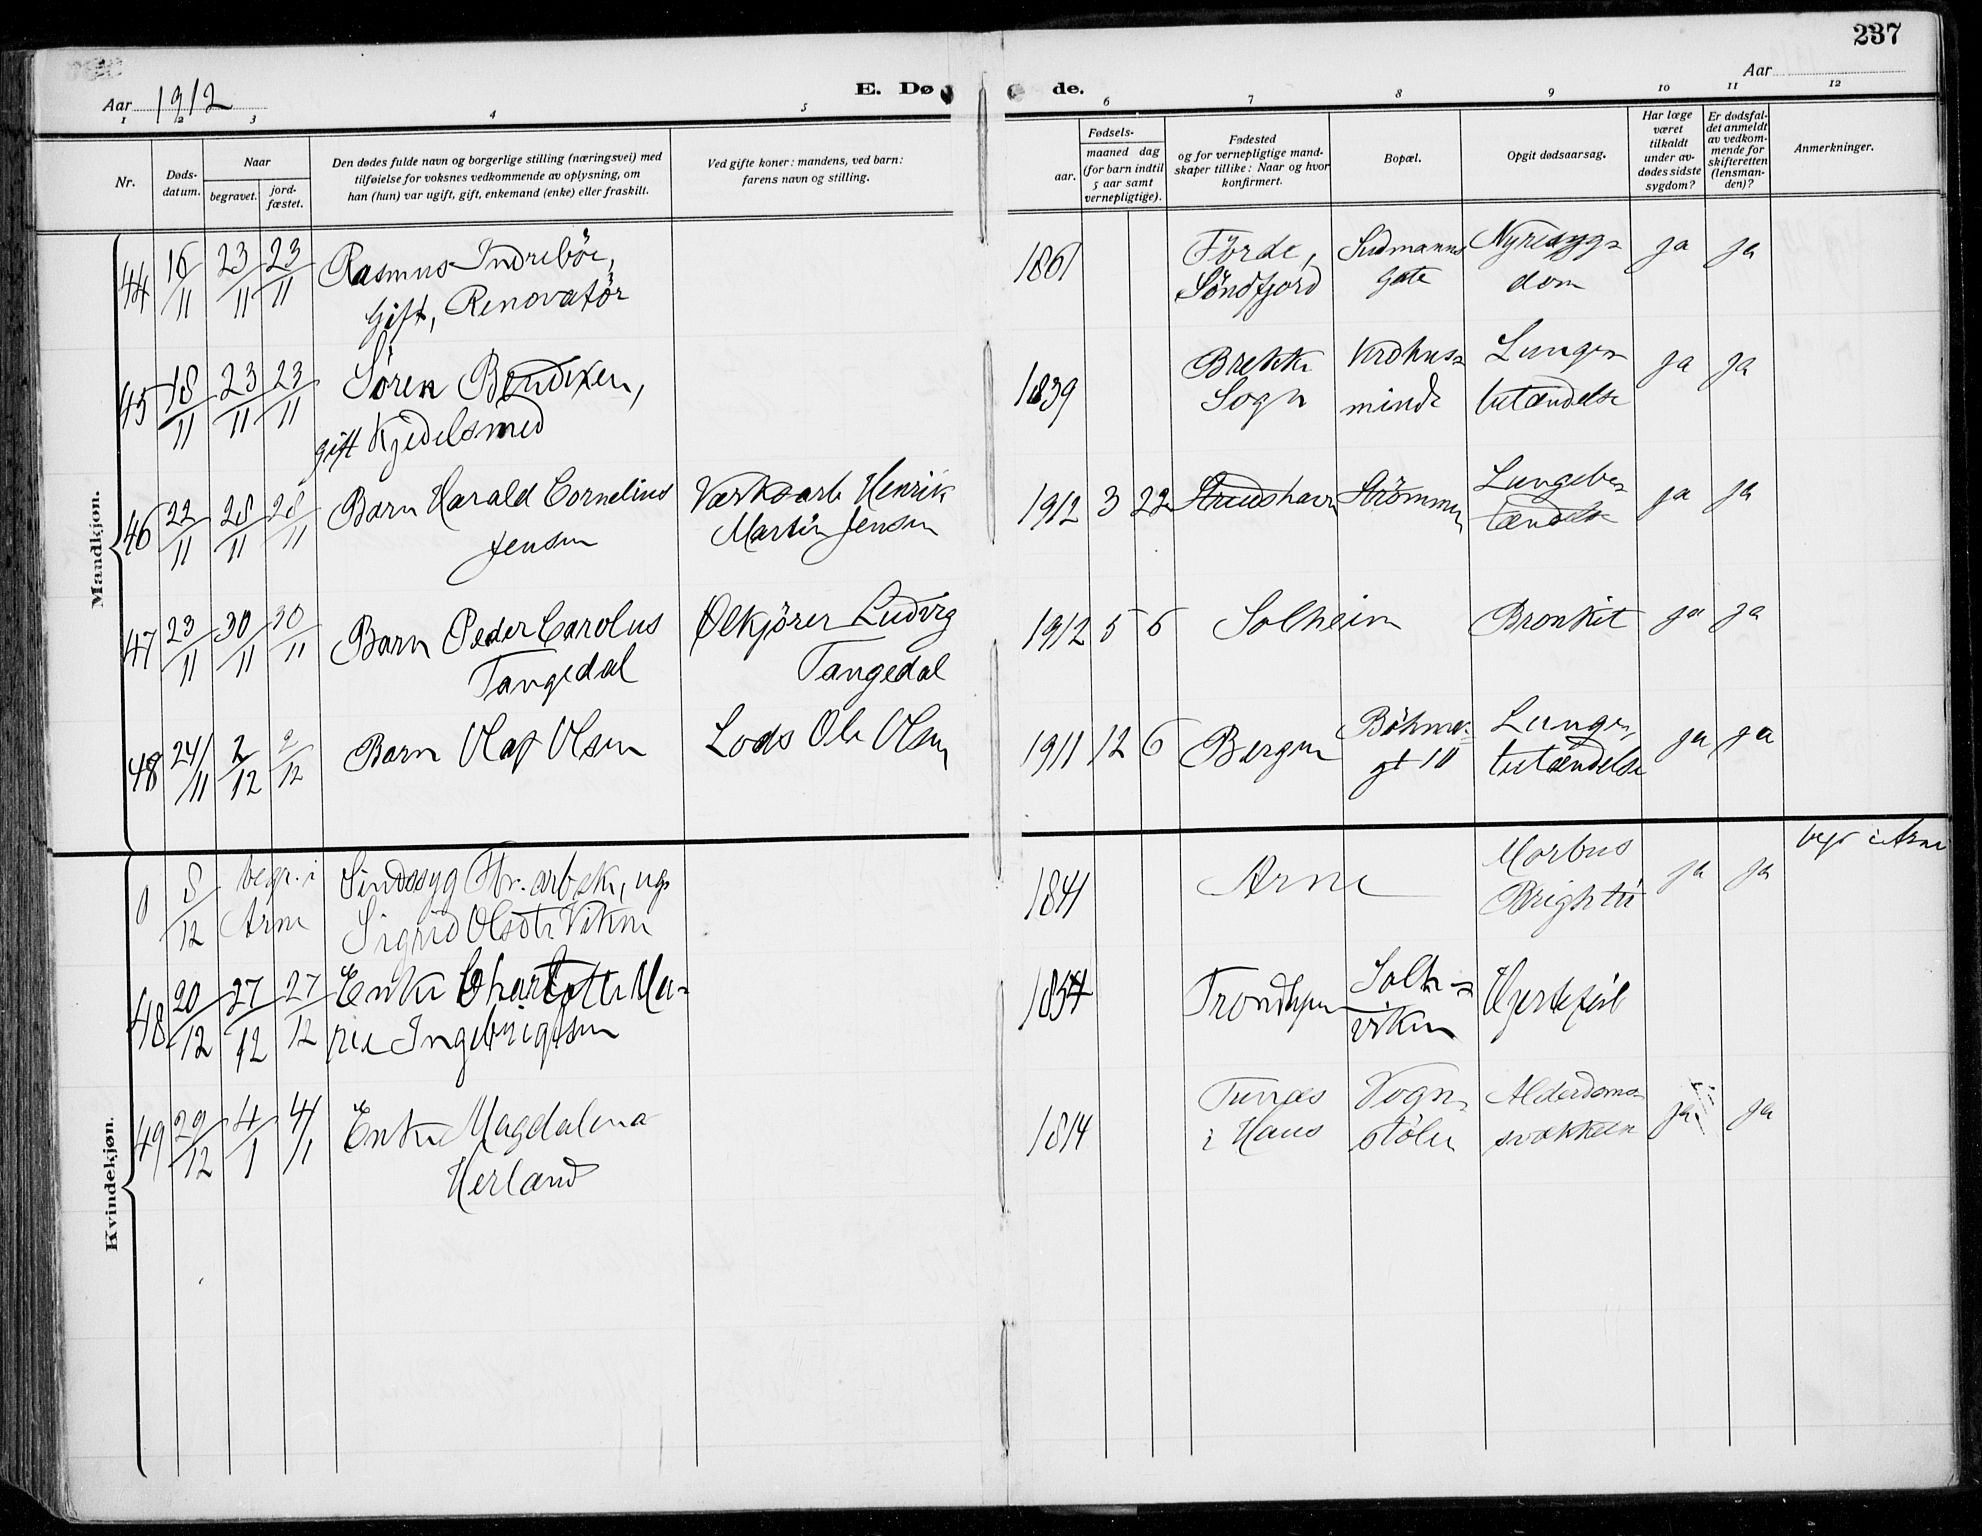 237
Aar 1912
E. Dø
de.
Aar
1 2 3 4 5 6 7 8 9 10 11 12
Nr.
Døds-
datum.
Naar
begravet.
jord-
fæstet.
Den dødes fulde navn og borgerlige stilling (næringsvei) med
tilføielse for voksnes vedkommende av oplysning, om
han (hun) var ugift, gift, enkemand (enke) eller fraskilt.
Ved gifte koner: mandens, ved barn:
farens navn og stilling.
Fødsels-
aar.
maaned dag
(for barn indtil
5 aar samt
vernepligtige).
Fødested
og for vernepligtige mand-
skaper tillike: Naar og hvor
konfirmert.
Bopæl.
Opgit dødsaarsag.
Har læge
været
tilkaldt
under av-
dødes sidste
sygdom?
Er dødsfal-
det anmeldt
av vedkom-
mende for
skifteretten
(lensman-
den)?
Anmerkninger.
Mandkjøn.
44 16/11 23/11 23/11 Rasmus Indreböe,
Gift, Renovatör
1861 Förde,
Söndfjord
Sudmanns
gate
Nyresyg=
dom
ja ja
45 18/11 23/11 23/11 Sören Bendixen,
gift Kjedelsmed
1839 Brekke
Sogn
Krohus=
minde
Lunge=
betændelse
ja ja
46 22/11 28/11 28/11 Barn Harald Cornelius
Jensen
Værksarb Henrik
Martin Jensen
1912 3 22 Strudshavn Strömmen
Lungebe=
tændelse
ja ja
47 23/11 30/11 30/11 Barn Peder Carolus
Tangedal
Ølkjörer Ludvig
Tangedal
1912 5 6 Solheim Bronkit ja ja
48 24/11 2/12 2/12 Barn Olaf Olsen Lods Ole Olsen
1911 12 6 Bergen
Böhmer-
gt 10
Lunge,
betændelse
ja ja
Kvindekjøn.
0 8/12 begr. i
Arne
Sindssyg Hr. arbsk, ug.
Sigrid Olsdtr Viken
1841 Arne
Morbus
Brightii
ja ja begr i Arne
48 20/12 27/12 27/12 Enke Charlotte Ma-
rie Ingebrigtsen
1854 Trondhjem
Solh=
viken
Hjertefeil
49 29/12 4/1 4/1 Enke Magdalena
Herland
1814 Tunæs
i Haus
Vogn
stölen
Alderdoms=
svækkelse
ja ja